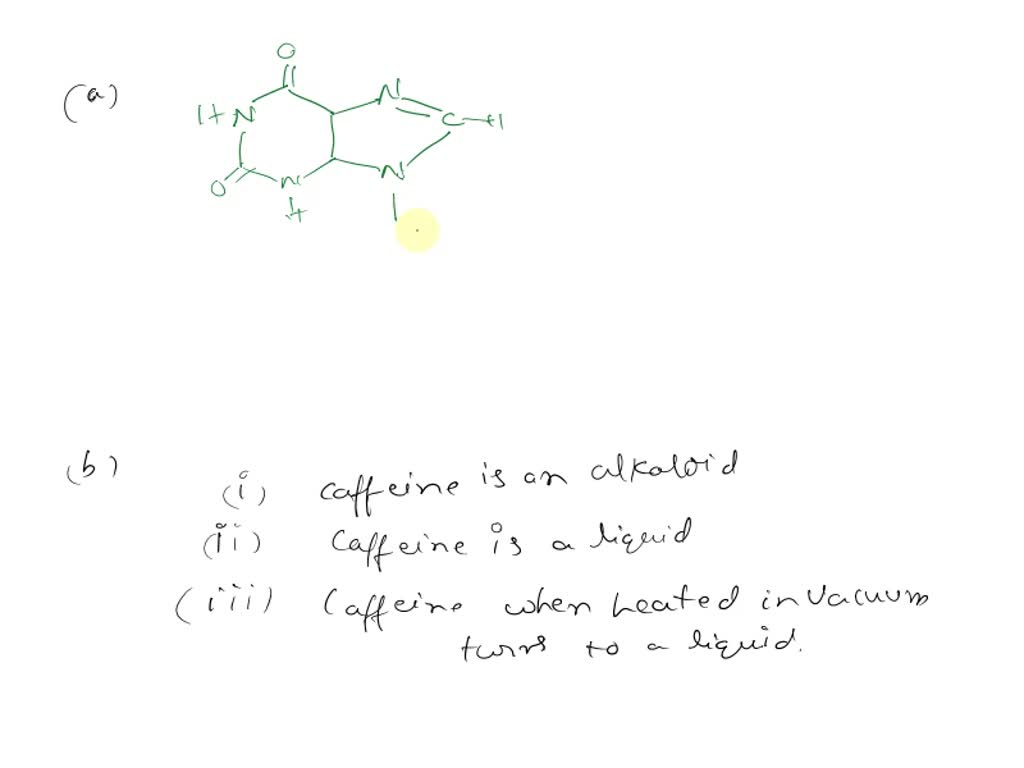 (a)
O
H N
N
C-H
O
N
H
N
(b)
(i) caffeine is an alkaloid
(ii) Caffeine is a liquid
(iii) Caffeine when heated in vacuum
turns to a liquid.